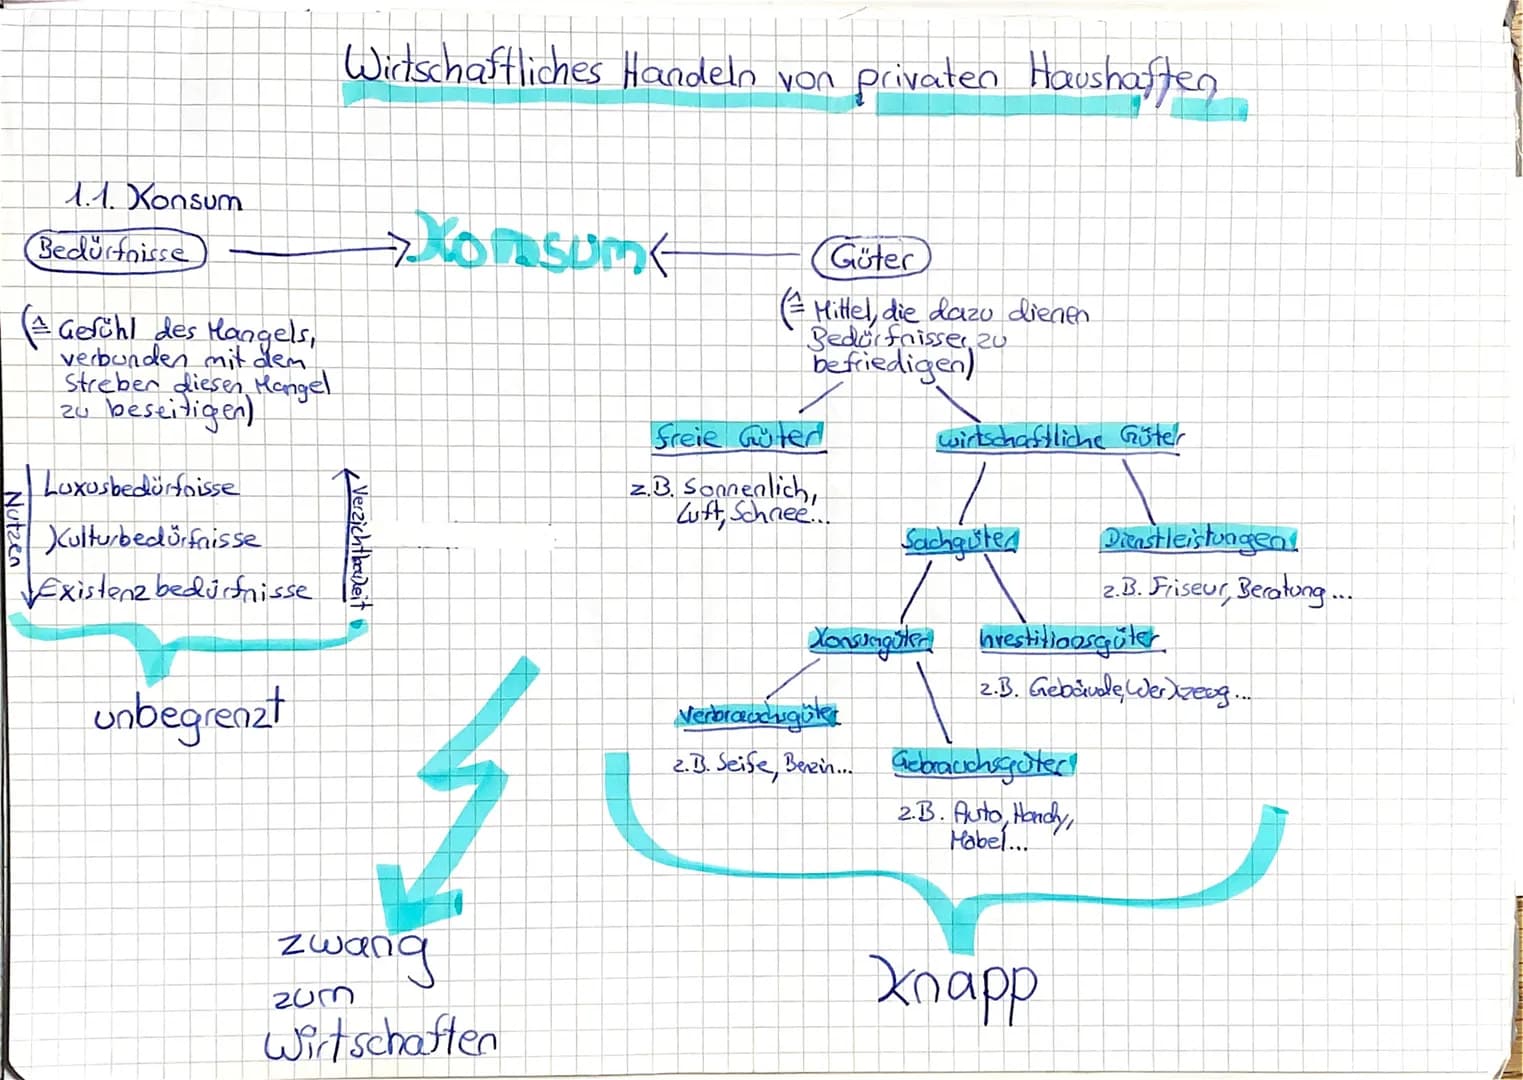 Wirtschaftliches Handeln von privaten Haushaften
1.1. Konsum
Bedürfnisse
Konsum
Güter
(≙ Gefühl des Mangels,
verbunden mit dem
Streben diesen Mangel
zu beseitigen)
(≙ Mittel, die dazu dienen
Bedürfnissen zu
befriedigen)
Nutzen
Luxusbedürfnisse
Kulturbedürfnisse
Existenzbedürfnisse
Verzichtbarkeit
unbegrenzt
freie Güter
z.B. Sonnenlich,
Luft, Schnee...
wirtschaftliche Güter
Sachgüter
Dienstleistungen
z.B. Friseur, Beratung...
Konsumgüter
Investitionsgüter
z.B. Gebäude, Werkzeug...
Verbrauchsgüter
z.B. Seife, Benzin...
Gebrauchsgüter
z.B. Auto, Handy,
Möbel...
zwang
zum
Wirtschaften
Knapp